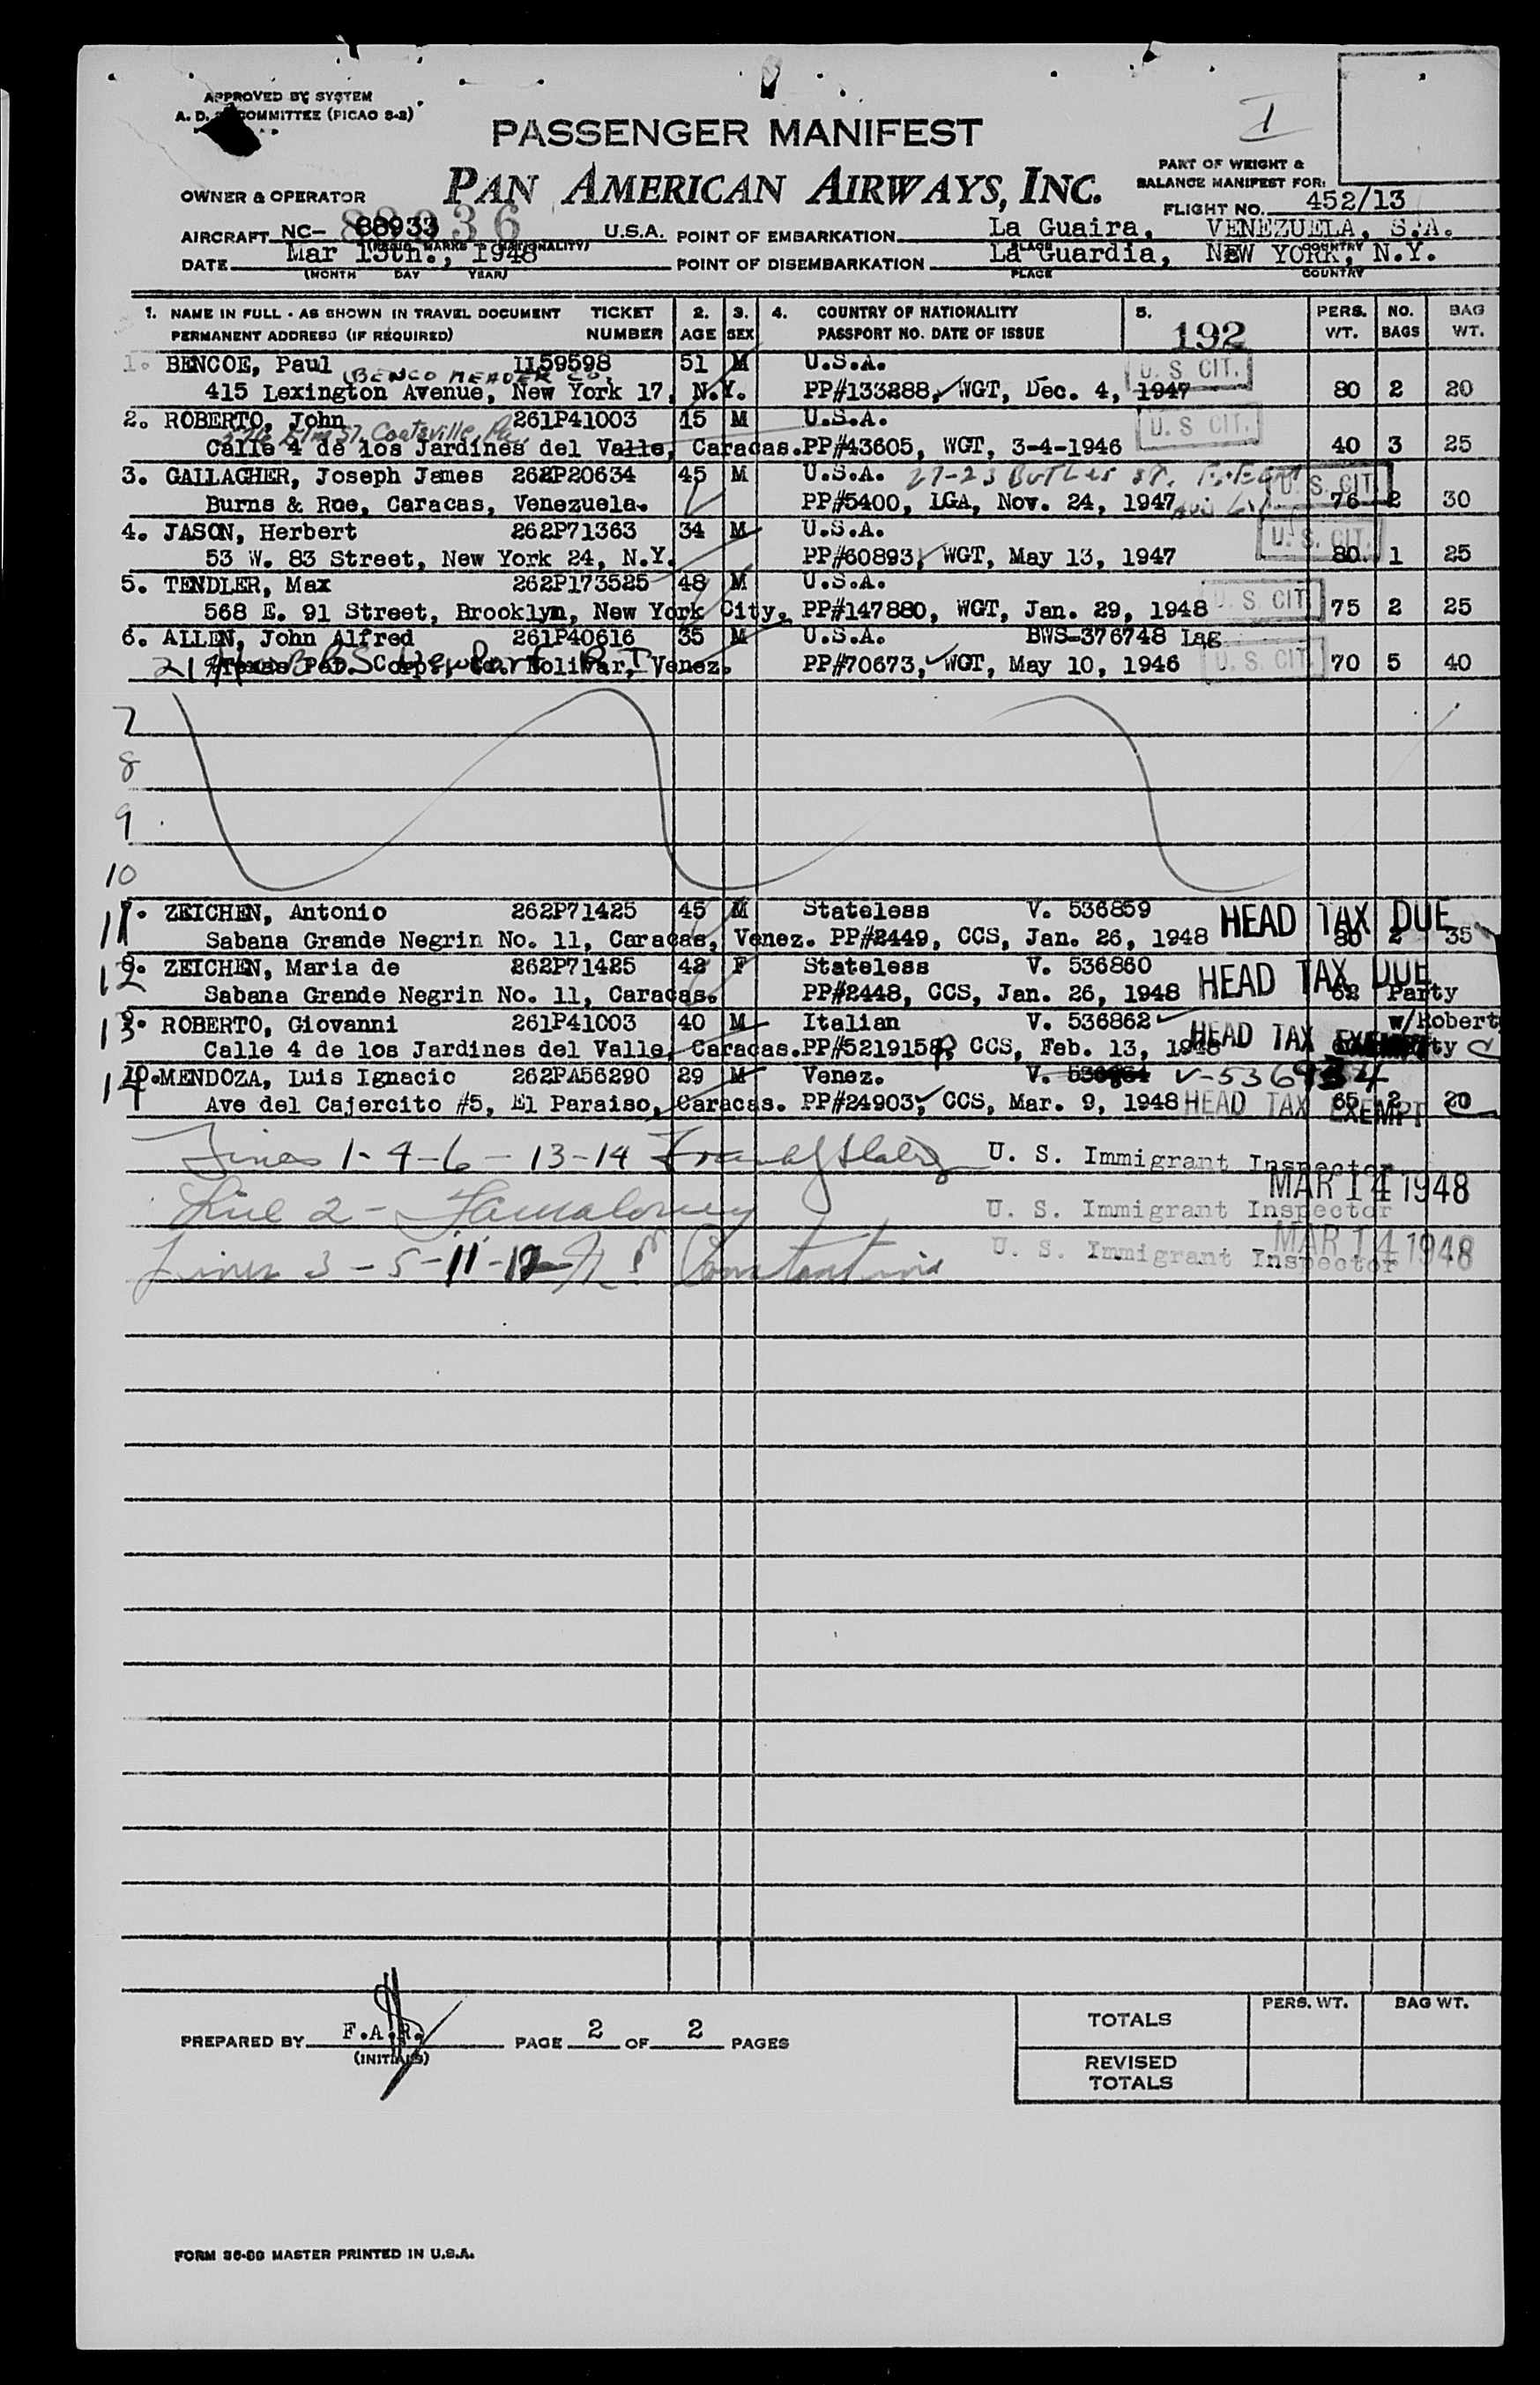 APPROVED BY SYSTEM
A. D. COMMITTEE (PICAO S-2)
PASSENGER MANIFEST
I
PAN AMERICAN AIRWAYS, INC.
PART OF WEIGHT &
BALANCE MANIFEST FOR:
OWNER & OPERATOR
FLIGHT NO. 452/13
AIRCRAFT NC- 88933 88936 U.S.A. POINT OF EMBARKATION La Guaira, VENEZUELA, S.A.
(REGIS. MARKS & NATIONALITY) PLACE COUNTRY
DATE Mar 13th., 1948 POINT OF DISEMBARKATION La Guardia, NEW YORK, N.Y.
(MONTH DAY YEAR) PLACE COUNTRY
1. NAME IN FULL - AS SHOWN IN TRAVEL DOCUMENT TICKET 2. 3. 4. COUNTRY OF NATIONALITY 5. PERS. NO. BAG
PERMANENT ADDRESS (IF REQUIRED) NUMBER AGE SEX PASSPORT NO. DATE OF ISSUE 192 WT. BAGS WT.
1. BENCOE, Paul LL59598 51 M U.S.A. U. S CIT.
BENCO MEADER CO.
415 Lexington Avenue, New York 17, N.Y. PP#133288, WGT, Dec. 4, 1947 80 2 20
2. ROBERTO, John 261P41003 15 M U.S.A. U. S CIT.
Elm St. Coatsville Pa.
Calle 4 de los Jardines del Valle, Caracas. PP#43605, WGT, 3-4-1946 40 3 25
3. GALLAGHER, Joseph James 262P20634 45 M U.S.A. 27-23 Butler St. U. S. CIT.
Burns & Roe, Caracas, Venezuela. PP#5400, LGA, Nov. 24, 1947 76 2 30
4. JASON, Herbert 262P71363 34 M U.S.A. U. S. CIT.
53 W. 83 Street, New York 24, N.Y. PP#60893, WGT, May 13, 1947 80 1 25
5. TENDLER, Max 262P173525 48 M U.S.A. U. S. CIT.
568 E. 91 Street, Brooklyn, New York City, PP#147880, WGT, Jan. 29, 1948 75 2 25
6. ALLEN, John Alfred 261P40616 35 M U.S.A. BWS-376748 Lag
Texas Pet. Corp., Bolivar, Venez. PP#70673, WGT, May 10, 1946 U. S. CIT. 70 5 40
7
8
9
10
11. ZEICHEN, Antonio 262P71425 45 M Stateless V. 536859 HEAD TAX DUE
Sabana Grande Negrin No. 11, Caracas, Venez. PP#2449, CCS, Jan. 26, 1948 80 2 35
12. ZEICHEN, Maria de 262P71425 42 F Stateless V. 536860 HEAD TAX DUE
Sabana Grande Negrin No. 11, Caracas. PP#2448, CCS, Jan. 26, 1948 62 Party
13. ROBERTO, Giovanni 261P41003 40 M Italian V. 536862 w/Robert
Calle 4 de los Jardines del Valle, Caracas. PP#5219158, CCS, Feb. 13, 1948 HEAD TAX
14 10. MENDOZA, Luis Ignacio 262PA56290 29 M Venez. V.
Ave del Cajercito #5, El Paraiso, Caracas. PP#24903, CCS, Mar. 9, 1948 HEAD TAX EXEMPT 65 2 20
Lines 1-4-6-13-14 U. S. Immigrant Inspector
MAR 14 1948
Line 2- U. S. Immigrant Inspector
MAR 14 1948
Lines 3-5-11-12 Constantine U. S. Immigrant Inspector
PREPARED BY F.A.R. PAGE 2 OF 2 PAGES
(INITIALS)
PERS. WT. BAG WT.
TOTALS
REVISED
TOTALS
FORM 36-80 MASTER PRINTED IN U.S.A.